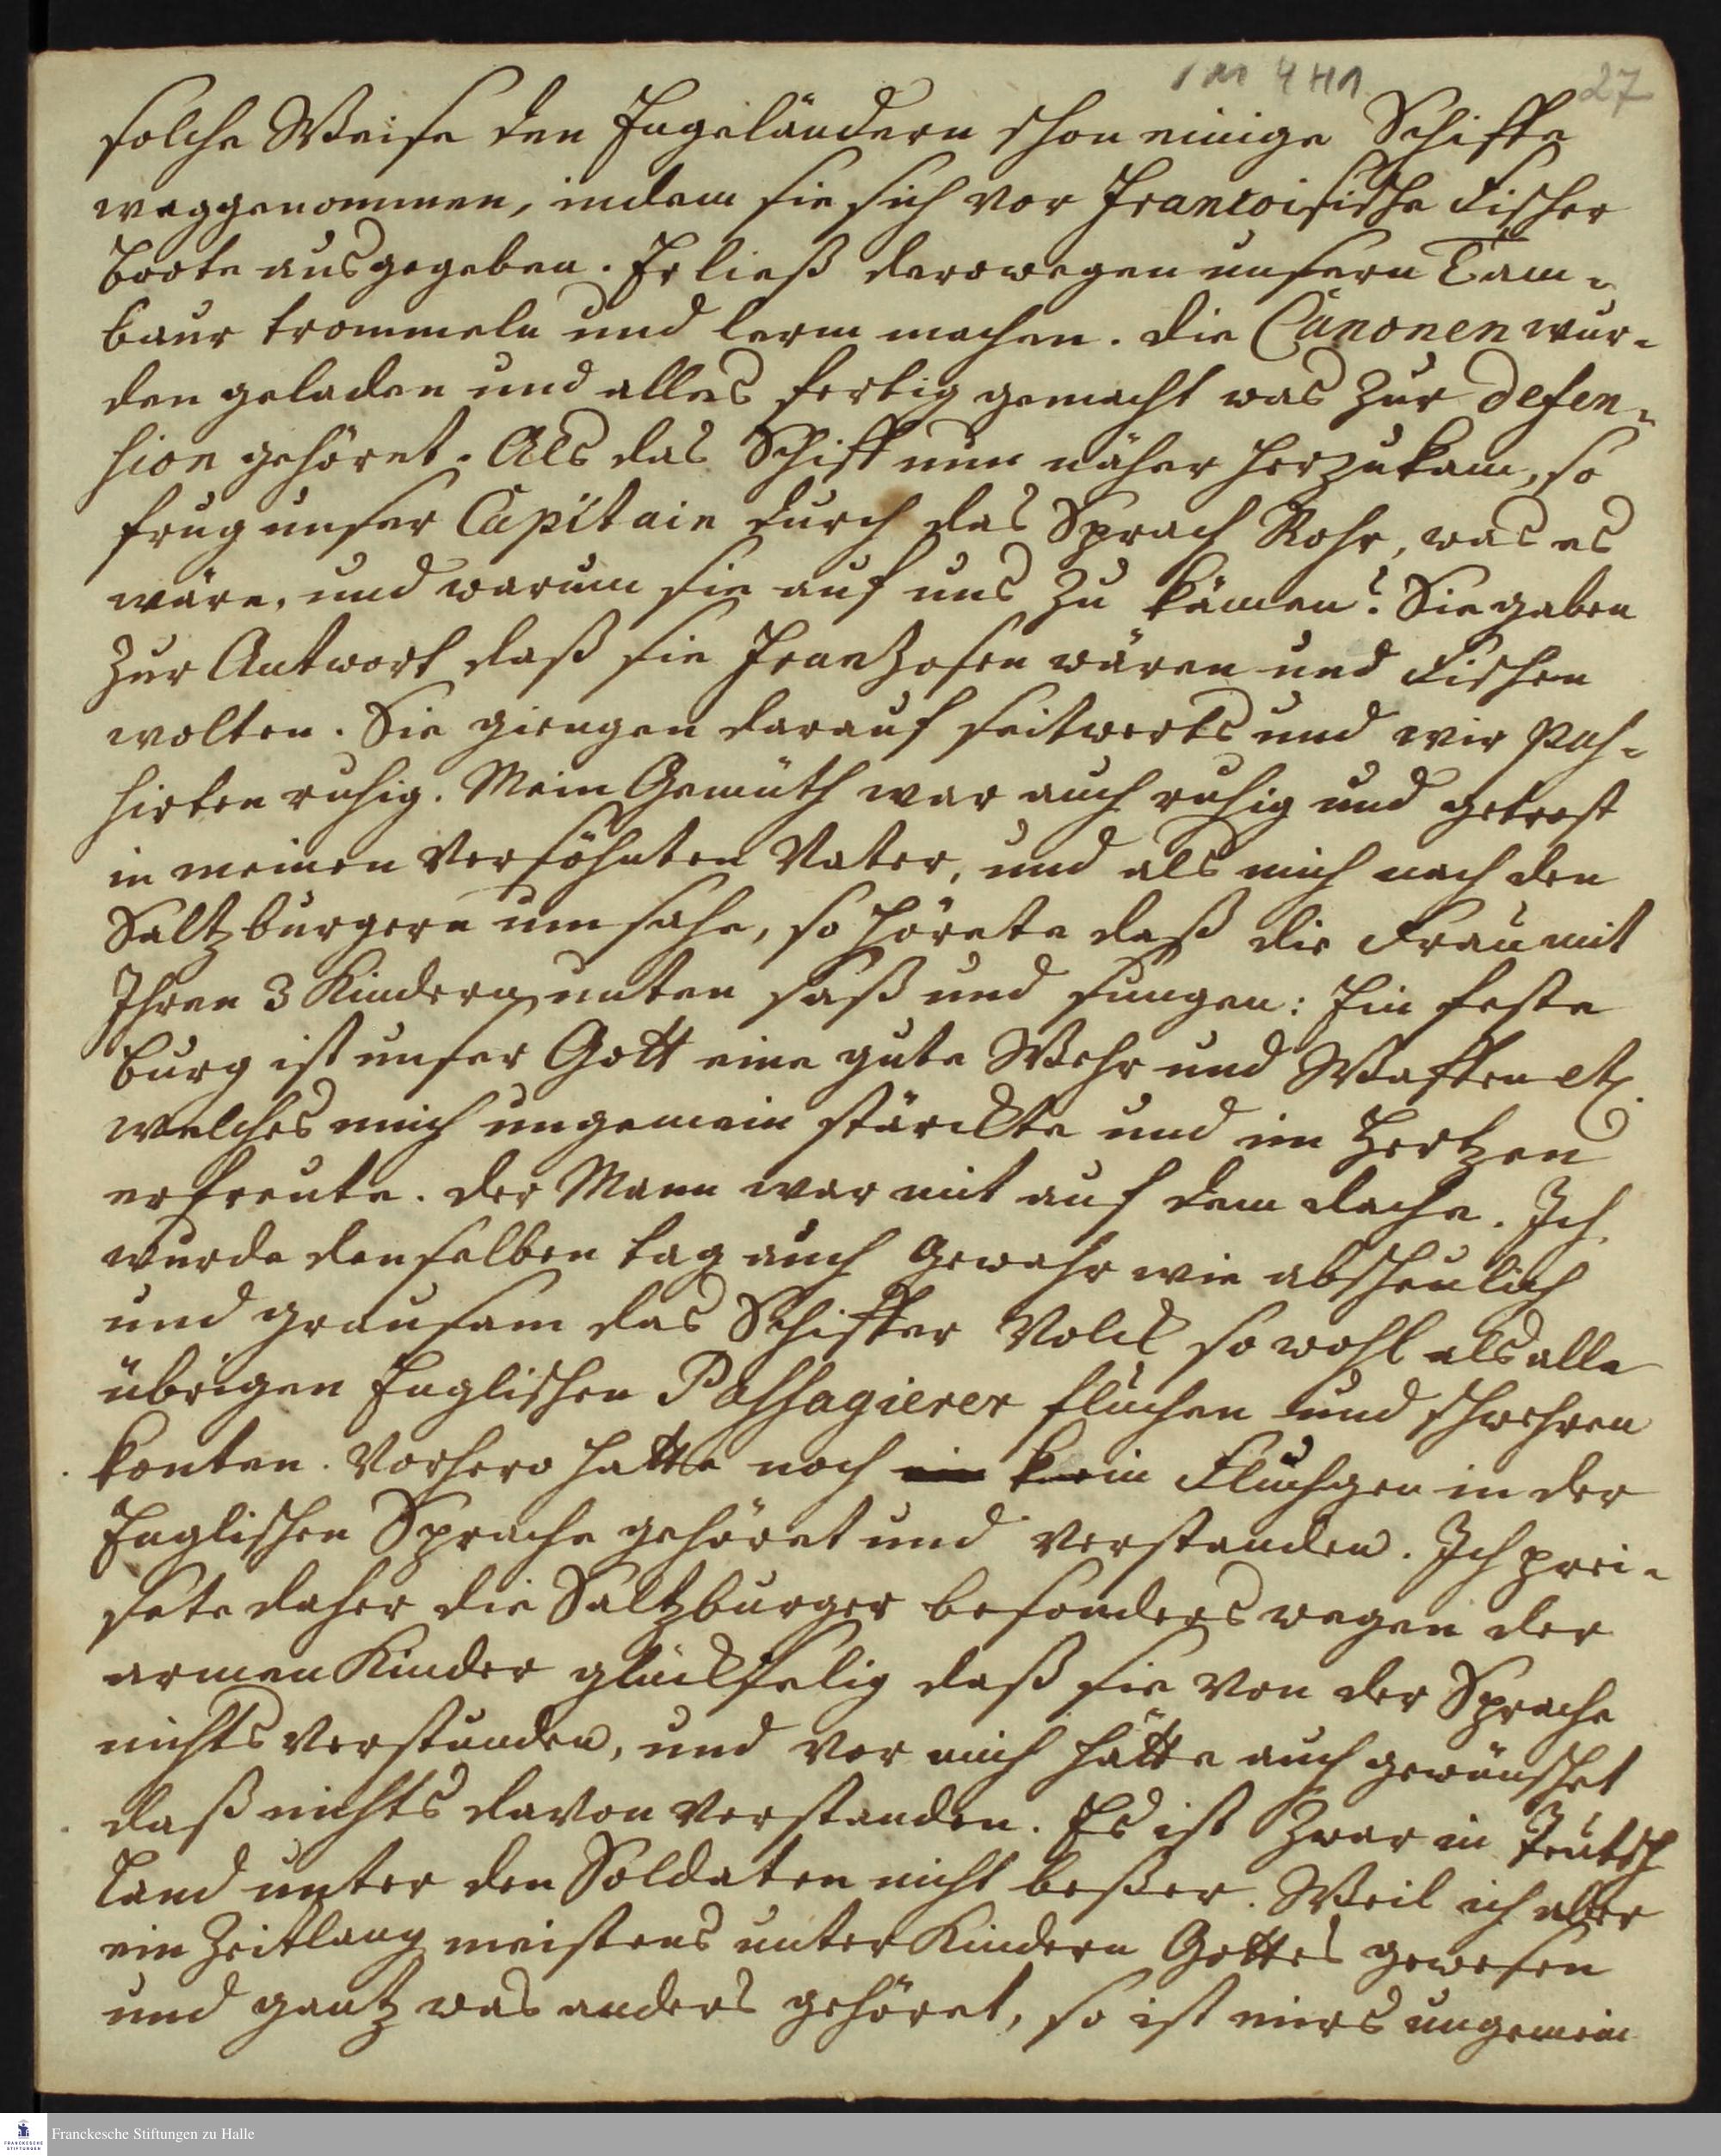 27
solche Weise den Engeländern schon einige Schiffe
weggenommen, indem sie sich vor Francoisische Fischer
boote ausgegeben. Er ließ derowegen unsern Tam-
baur trommeln und lerm machen. die Canonen wur-
den geladen und alles fertig gemacht was zur defen-
sion gehöret. Als das Schiff nun näher herzukam, so
frug unser Capitain durch das Sprach Rohr, was es
wäre, und warum sie auf uns zu kämen? Sie gaben
zur Antwort daß sie Franzosen wären und Fischen
wolten. Sie giengen darauf seitwerts und wir pas-
sirten ruhig. Mein Gemüth war auch ruhig und getrost
in meinen versöhnten Vater, und als mich nach den
Saltzburgern umsahe, so hörete daß die Frau mit
Ihren 3 Kindern unten saß und sungen: Ein feste
burg ist unser Gott eine gute Wehr und Waffen etc.
welches mich ungemein stärckte und im Hertzen
erfreute. der Mann war mit auf dem dache. Ich
wurde denselben tag auch gewahr wie abscheulich
und grausam das Schiffer Volck so wohl als alle
übrigen Englischen Passagierer fluchen und schwehren
konten. Vorhero hatte noch ein kein Fluchgen in der
Englischen Sprache gehöret und verstanden. Ich prei-
sete daher die Saltzburger besonders wegen der
armen Kinder glückselig daß sie von der Sprache
nichts verstunden, und vor mich hätte auch gewünschet
daß nichts davon verstanden. Es ist zwar in Teutsch
land unter den Soldaten nicht beßer. Weil ich aber
ein Zeitlang meistens unter Kindern Gottes gewesen
und gantz was anders gehöret, so ist mirs ungemein
Franckesche Stiftungen zu Halle
FRANCKESCHE
STIFTUNGEN